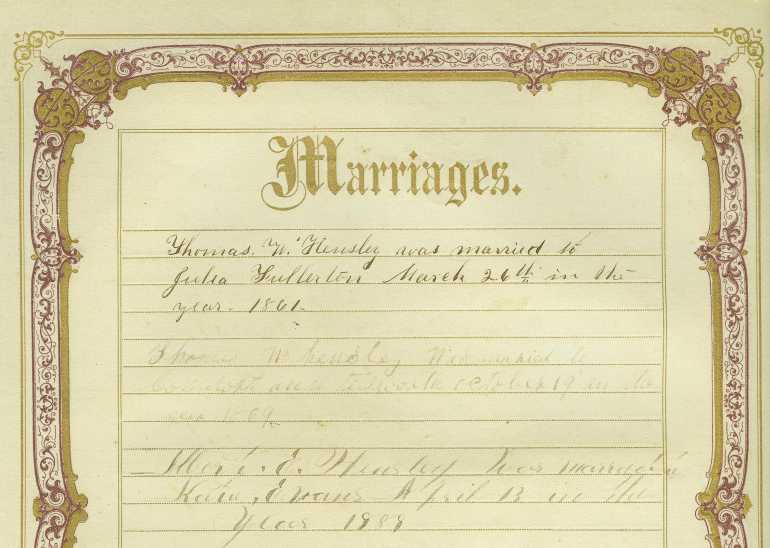 Marriages.
Thomas. W. Hensley was married to
Julia Fullerton March 26th in the
year. 1861.
Thomas W hensley Was married to
october 19 in the
year 1869
Albert. E. Hensley Was married to
Kate, Evans April 13 in the
Year 1988